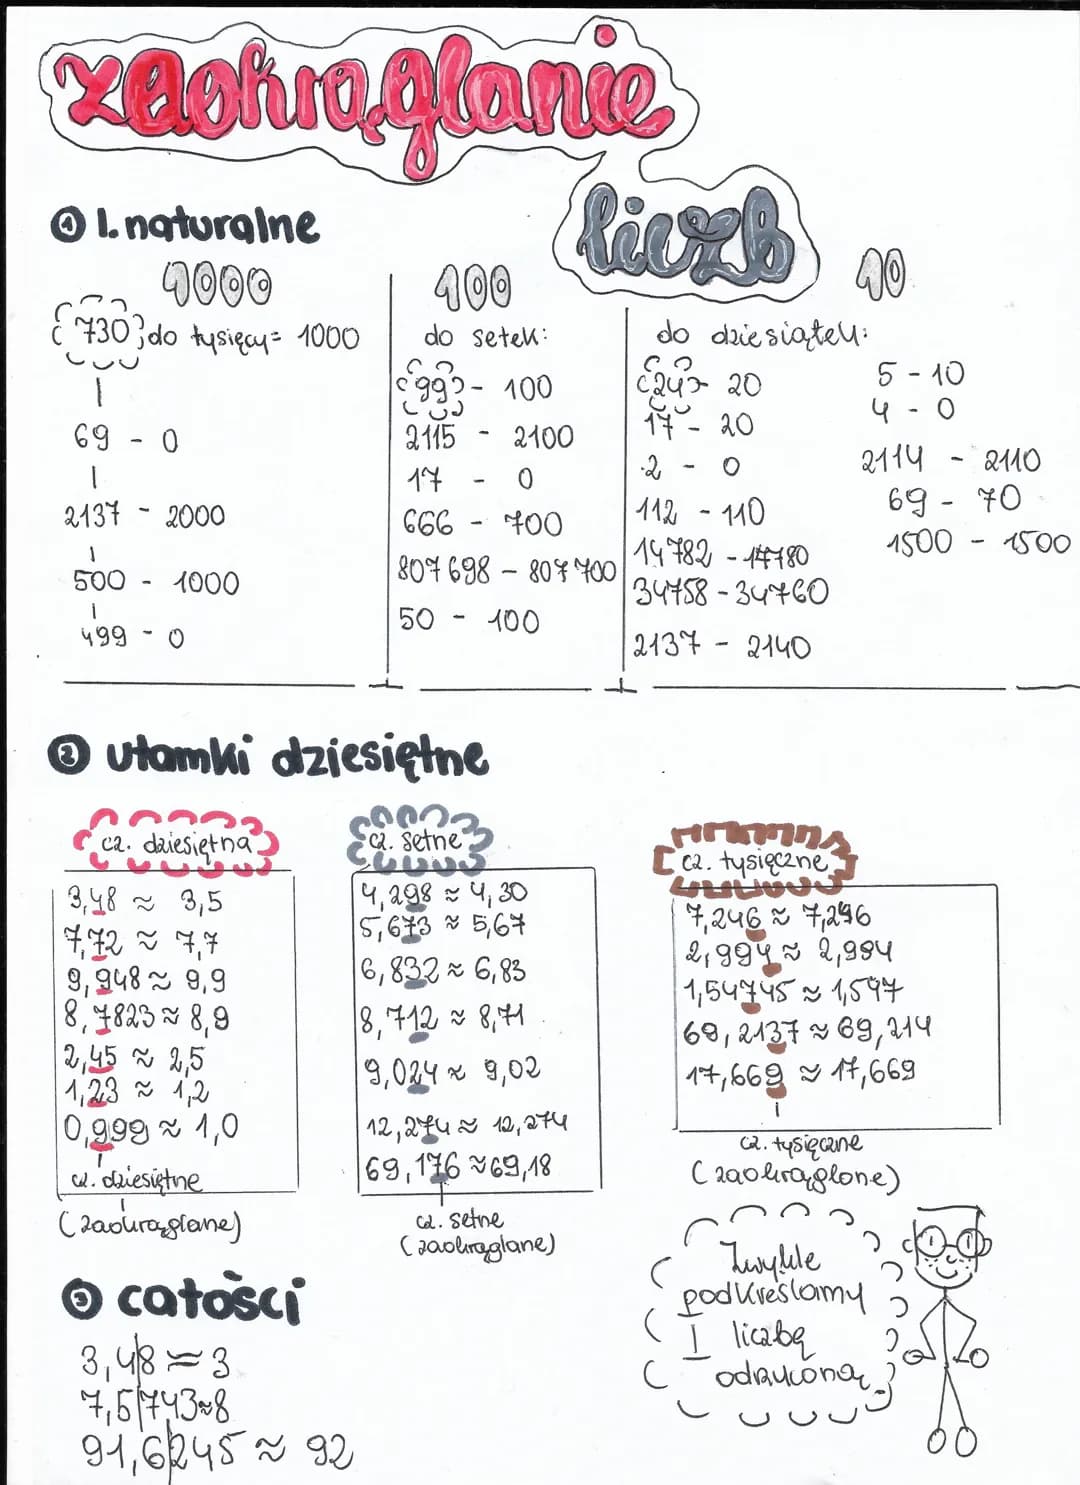 zaokrąglanie
liczb
① l. naturalne
1000
730 do tysięcy = 1000
69 - 0
2137 - 2000
500 - 1000
499 - 0
100
do setek:
99 - 100
2115 - 2100
17 - 0
666 - 700
807698 - 807700
50 - 100
10
do dziesiątek:
24 - 20
17 - 20
2 - 0
112 - 110
14782 - 17780
34758 - 34760
2137 - 2140
5 - 10
4 - 0
2114 - 2110
69 - 70
1500 - 1500
② ułamki dziesiętne
cz. dziesiętna
3,48 ≈ 3,5
7,72 ≈ 7,7
9,948 ≈ 9,9
8,7823 ≈ 8,9
2,45 ≈ 2,5
1,23 ≈ 1,2
0,999 ≈ 1,0
cz. dziesiętne
(zaokrąglane)
cz. setne
4,298 ≈ 4,30
5,673 ≈ 5,67
6,832 ≈ 6,83
8,712 ≈ 8,71
9,024 ≈ 9,02
12,274 ≈ 12,274
69,176 ≈ 69,18
cz. setne
(zaokrąglane)
cz. tysięczne
7,246 ≈ 7,246
2,994 ≈ 2,994
1,54745 ≈ 1,547
69,2137 ≈ 69,214
17,669 ≈ 17,669
cz. tysięczne
(zaokrąglone)
Zwykle
podkreślamy
I liczbę
odrzuconą
③ całości
3,48 ≈ 3
7,5743 ≈ 8
91,6245 ≈ 92